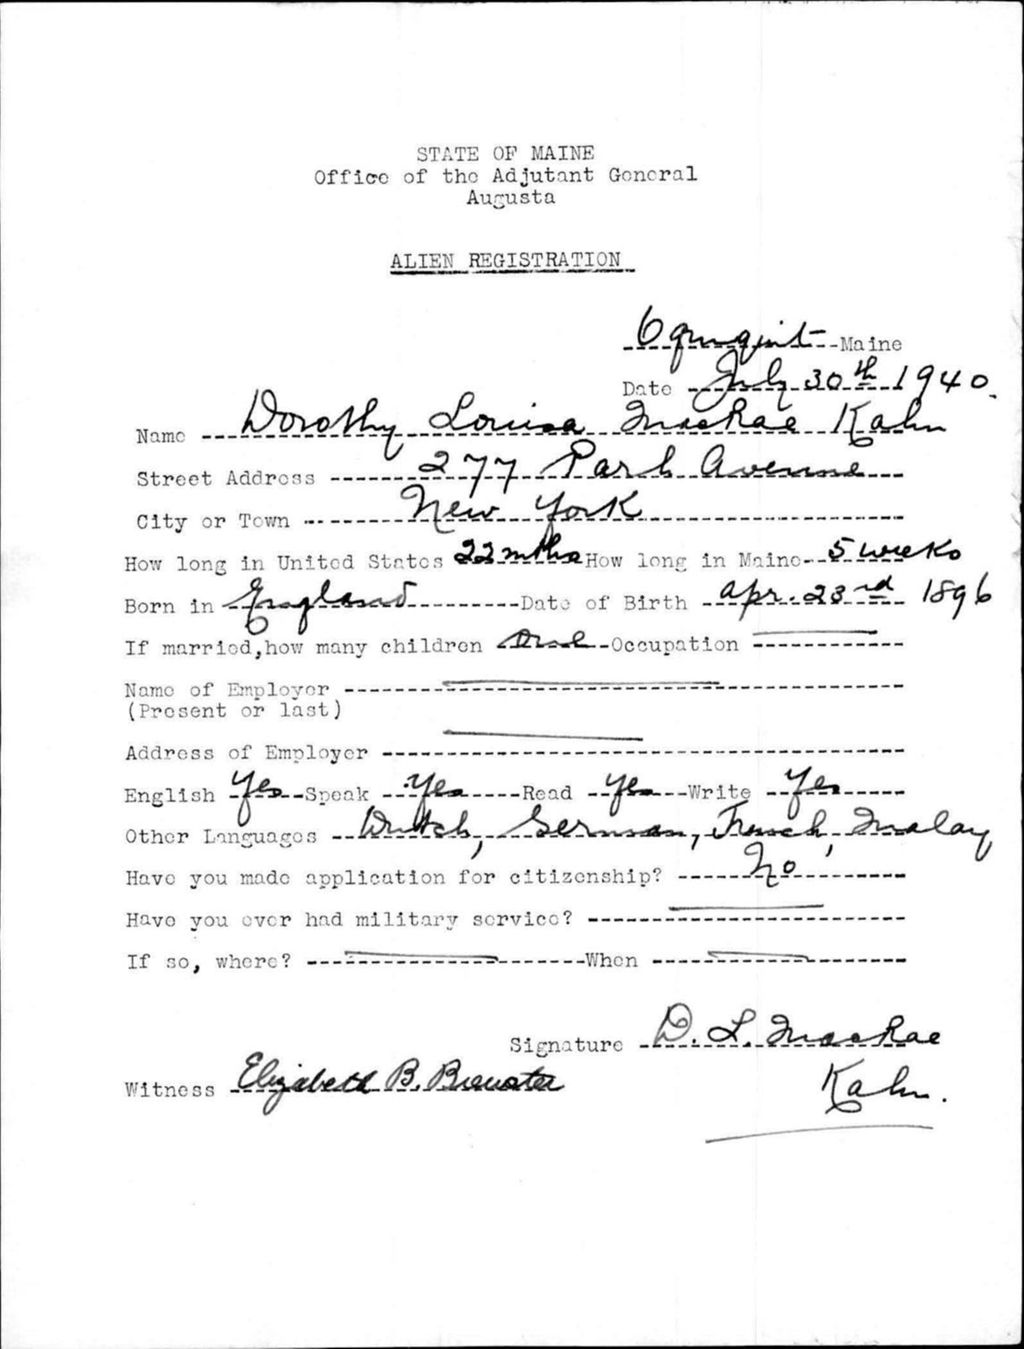 STATE OF MAINE
Office of the Adjutant General
Augusta
ALIEN REGISTRATION
Ogunquit Maine
Date July 30th 1940.
Name Dorothy Louisa MacRae Kahn
Street Address 277 Park Avenue
City or Town New York
How long in United States 22 mths How long in Maine 5 weeks
Born in England Date of Birth Apr. 23rd 1896
If married, how many children One Occupation
Name of Employer
(Present or last)
Address of Employer
English Yes Speak Yes Read Yes Write Yes
Other Languages Dutch, German, French, Malay
Have you made application for citizenship? No
Have you ever had military service?
If so, where? When
Signature D. L. MacRae
Witness Elizabeth B. Brewster
Kahn.